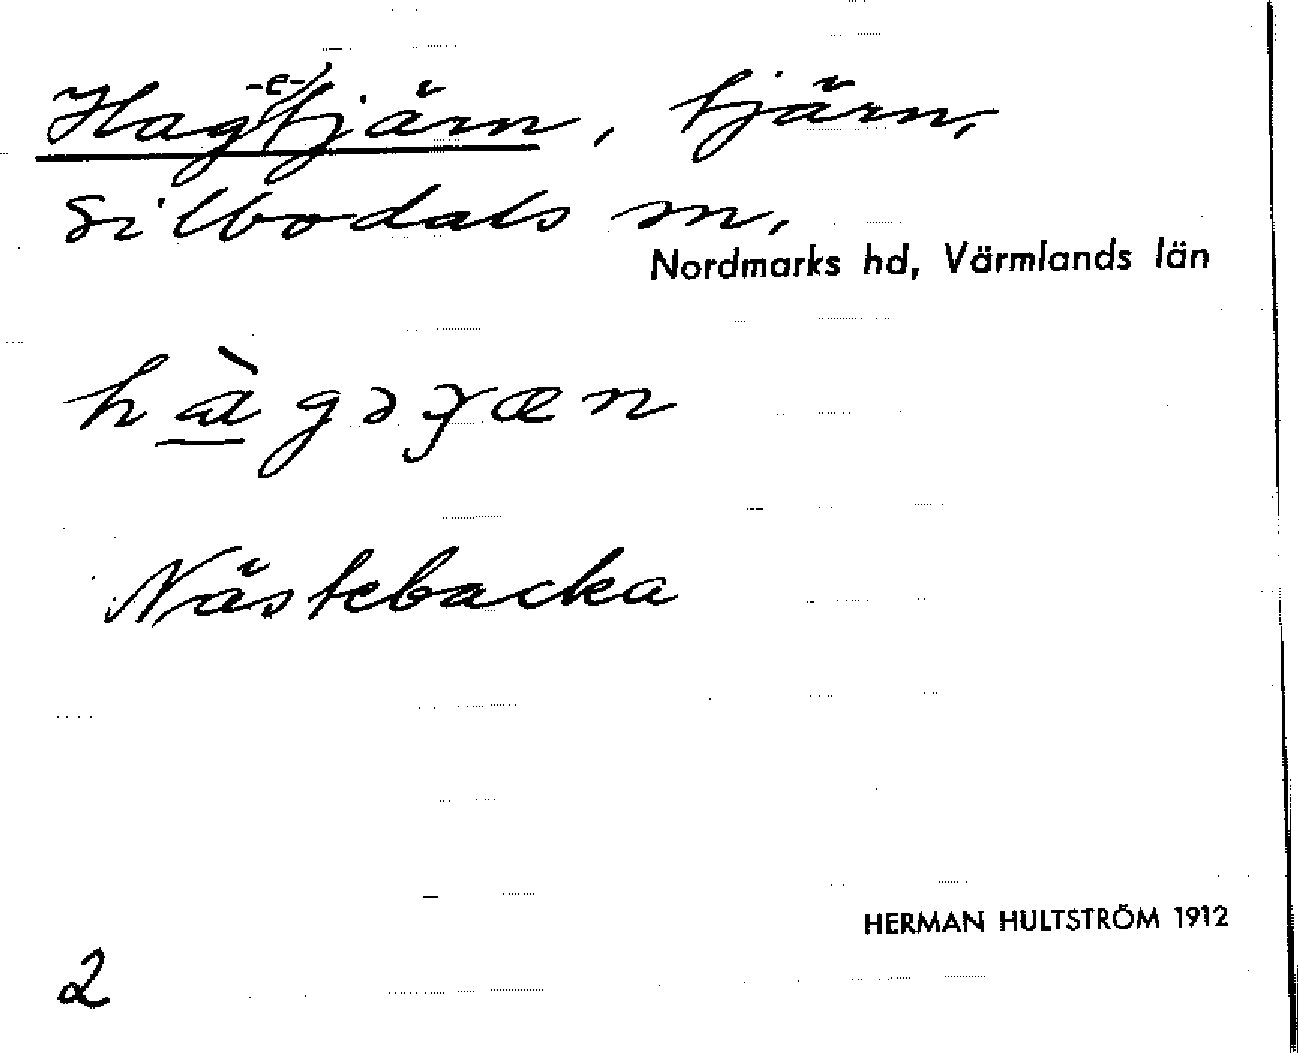 Hag-e-tjärn, tjärn,
Silbodals sn,
Nordmarks hd, Värmlands län
Nästebacka
HERMAN HULTSTRÖM 1912
2